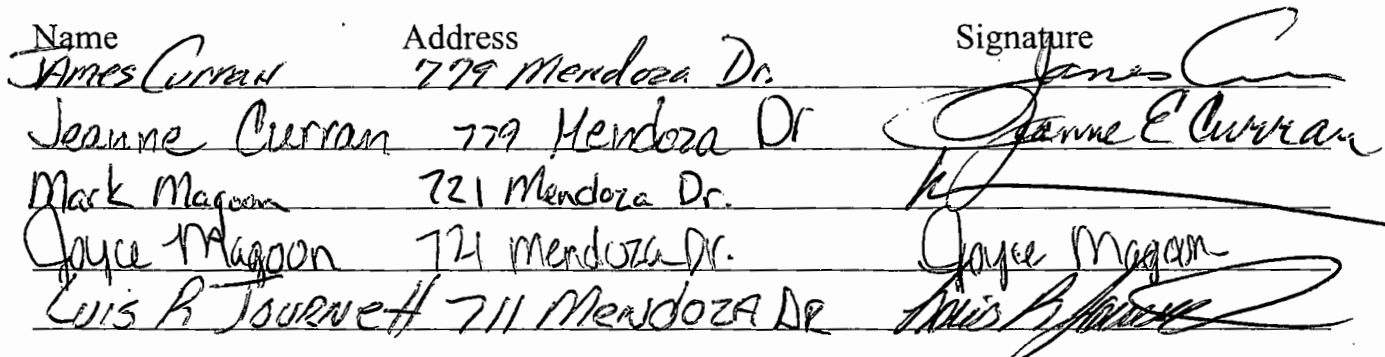 Name Address Signature
James Curran 779 Mendoza Dr. James
Jeanne Curran 779 Mendoza Dr Jeanne E Curran
Mark Magoon 721 Mendoza Dr.
Joyce Magoon 721 Mendoza Dr. Joyce Magoon
Luis R Journett 711 MENDOZA DR Luis R